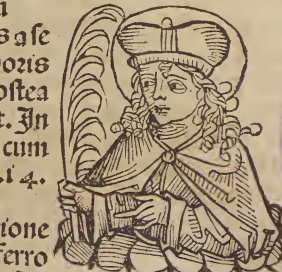 s ase
poris
ostea
t. In
cum
.14.
ione
ferro